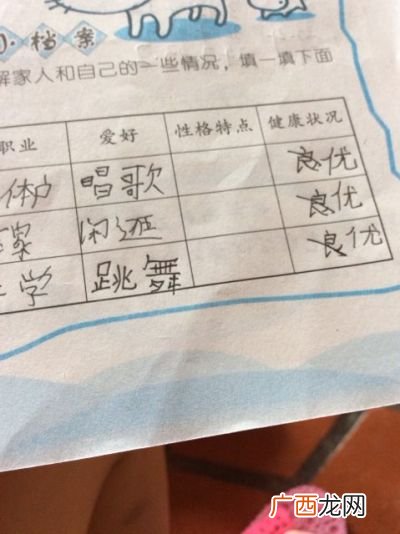 档案
解家人和自己的一些情况，填一填下面
职业 爱好 性格特点 健康状况
体户 唱歌 良优
家 闲逛 良优
学 跳舞 良优
广西龙网